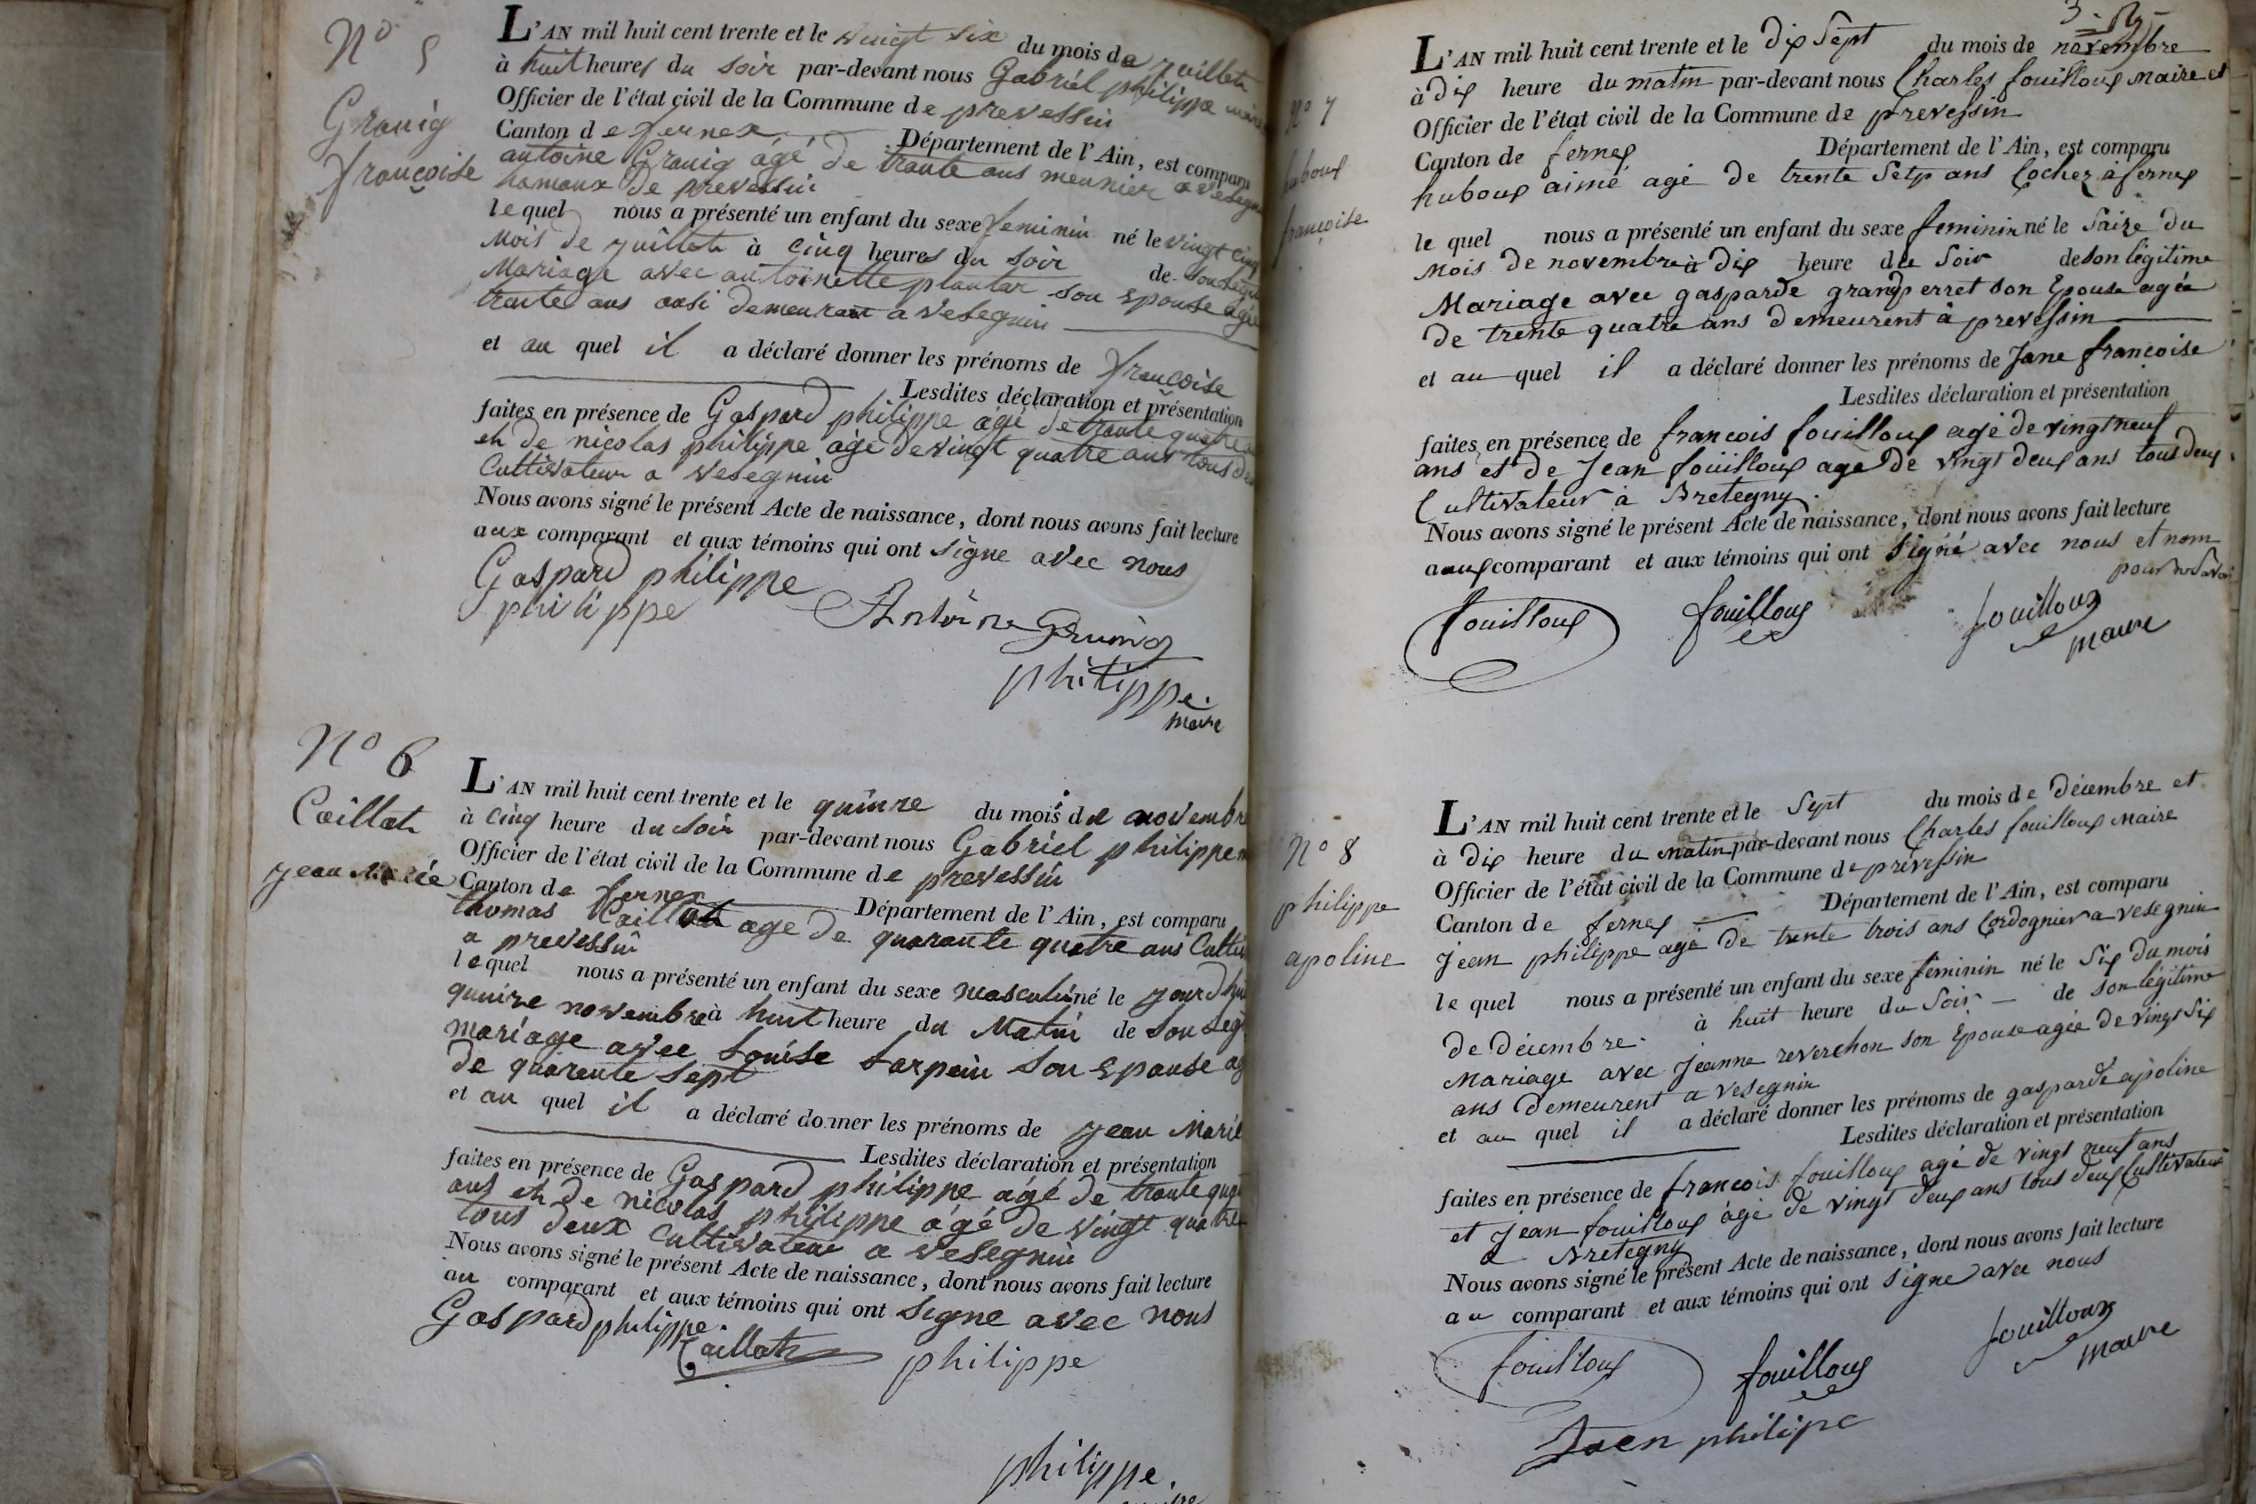 N° 5
Grauig
françoise
L'AN mil huit cent trente et le vingt six du mois de juillet
à huit heures du soir par-devant nous Gabriél philippe maire
Officier de l'état civil de la Commune de prevessin
Canton de fernex Département de l'Ain, est comparu
antoine Grauig âgé de trante ans meunier a vesegnin
hamaux de prevessin
lequel nous a présenté un enfant du sexe feminin né le vingt cinq
Mois de juillet à cinq heures du soir de son
Mariage avec antoinette plantar son Epouse agée
trante ans ausi demeurant a vesegnin
et au quel il a déclaré donner les prénoms de françoise
Lesdites déclaration et présentation
faites en présence de Gaspard philippe âgé de trante quatre
et de nicolas philippe âgé de vingt quatre ans tous
Cultivateur a vesegnin
Nous avons signé le présent Acte de naissance, dont nous avons fait lecture
aux comparant et aux témoins qui ont signe avec nous
Gaspard philippe
philippe
Antoine
philippe.
maire
N° 6
Caillat
jean Marie
L'AN mil huit cent trente et le quinze du mois de novembre
à cinq heure du soir par-devant nous Gabriél philippe
Officier de l'état civil de la Commune de prevessin
Canton de fernex Département de l'Ain, est comparu
thomas Caillat age de quarante quatre ans
a prevessin
lequel nous a présenté un enfant du sexe masculin né le jourdhui
quinze novembre à huit heure du Matin de son
mariage avec Louise Sarpain son Epouse
de quarente sept
et au quel il a déclaré donner les prénoms de jean Marie
Lesdites déclaration et présentation
faites en présence de Gaspard philippe âgé de trante
ans et de nicolas philippe âgé de vingt quatre
tous deux cultivateur a vesegnin
Nous avons signé le présent Acte de naissance, dont nous avons fait lecture
au comparant et aux témoins qui ont signe avec nous
Gaspard philippe.
Caillat
philippe
philippe.
N° 7
huboux
françoise
L'AN mil huit cent trente et le dix Sept du mois de novembre
à dix heure du matin par-devant nous Charles fouilloux Maire et
Officier de l'état civil de la Commune de prevessin
Canton de fernex Département de l'Ain, est comparu
huboux aimé agé de trente Setp ans Cocher à fernex
le quel nous a présenté un enfant du sexe feminin né le Saize du
Mois de novembre à dix heure du Soir de son légitime
Mariage avec gasparde grandperret son Epouse agée
de trente quatre ans demeurent à prevessin
et au quel il a déclaré donner les prénoms de Jane françoise
Lesdites déclaration et présentation
faites en présence de francois fouilloux agé de vingt neuf
ans et de Jean fouilloux age de vingt deux ans tous deux
Cultivateur à Bretegny.
Nous avons signé le présent Acte de naissance, dont nous avons fait lecture
aux comparant et aux témoins qui ont signé avec nous et nom
fouilloux fouilloux fouilloux
maire
N° 8
philippe
apoline
L'AN mil huit cent trente et le Sept du mois de décembre et
à dix heure du matin par-devant nous Charles fouilloux Maire
Officier de l'état civil de la Commune de prevessin
Canton de fernex Département de l'Ain, est comparu
jean philippe agé de trente trois ans Cordognier a vesegnin
le quel nous a présenté un enfant du sexe féminin né le Six du mois
de décembre. à huit heure du Soir de son légitime
Mariage avec Jeanne reverchon son Epouse agée de vingt Six
ans demeurent a vesegnin
et au quel il a déclaré donner les prénoms de gasparde apoline
Lesdites déclaration et présentation
faites en présence de francois fouilloux agé de vingt neuf ans
et jean fouilloux âgé de vingt deux ans tous deux Cultivateur
a Bretegny
Nous avons signé le présent Acte de naissance, dont nous avons fait lecture
au comparant et aux témoins qui ont signe avec nous
fouilloux fouilloux fouilloux
maire
Jaen philipe